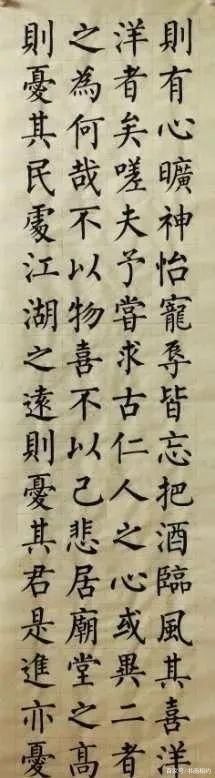 則有心曠神怡寵辱皆忘把酒臨風其喜洋
洋者矣嗟夫予嘗求古仁人之心或異二者
之為何哉不以物喜不以己悲居廟堂之高
則憂其民處江湖之遠則憂其君是進亦憂